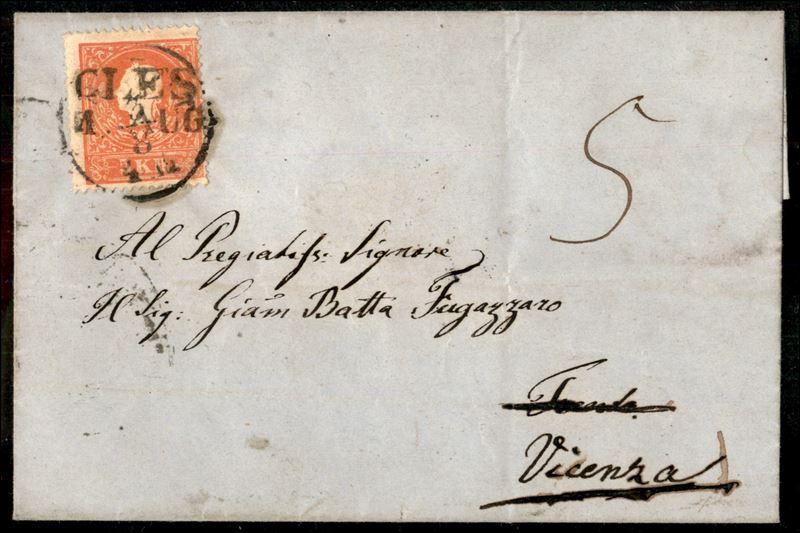 CLES
4 AUG
5
Al Pregiatiss: Signore
Il Sig: Giām Batta Fugazzaro
Trento
Vicenza